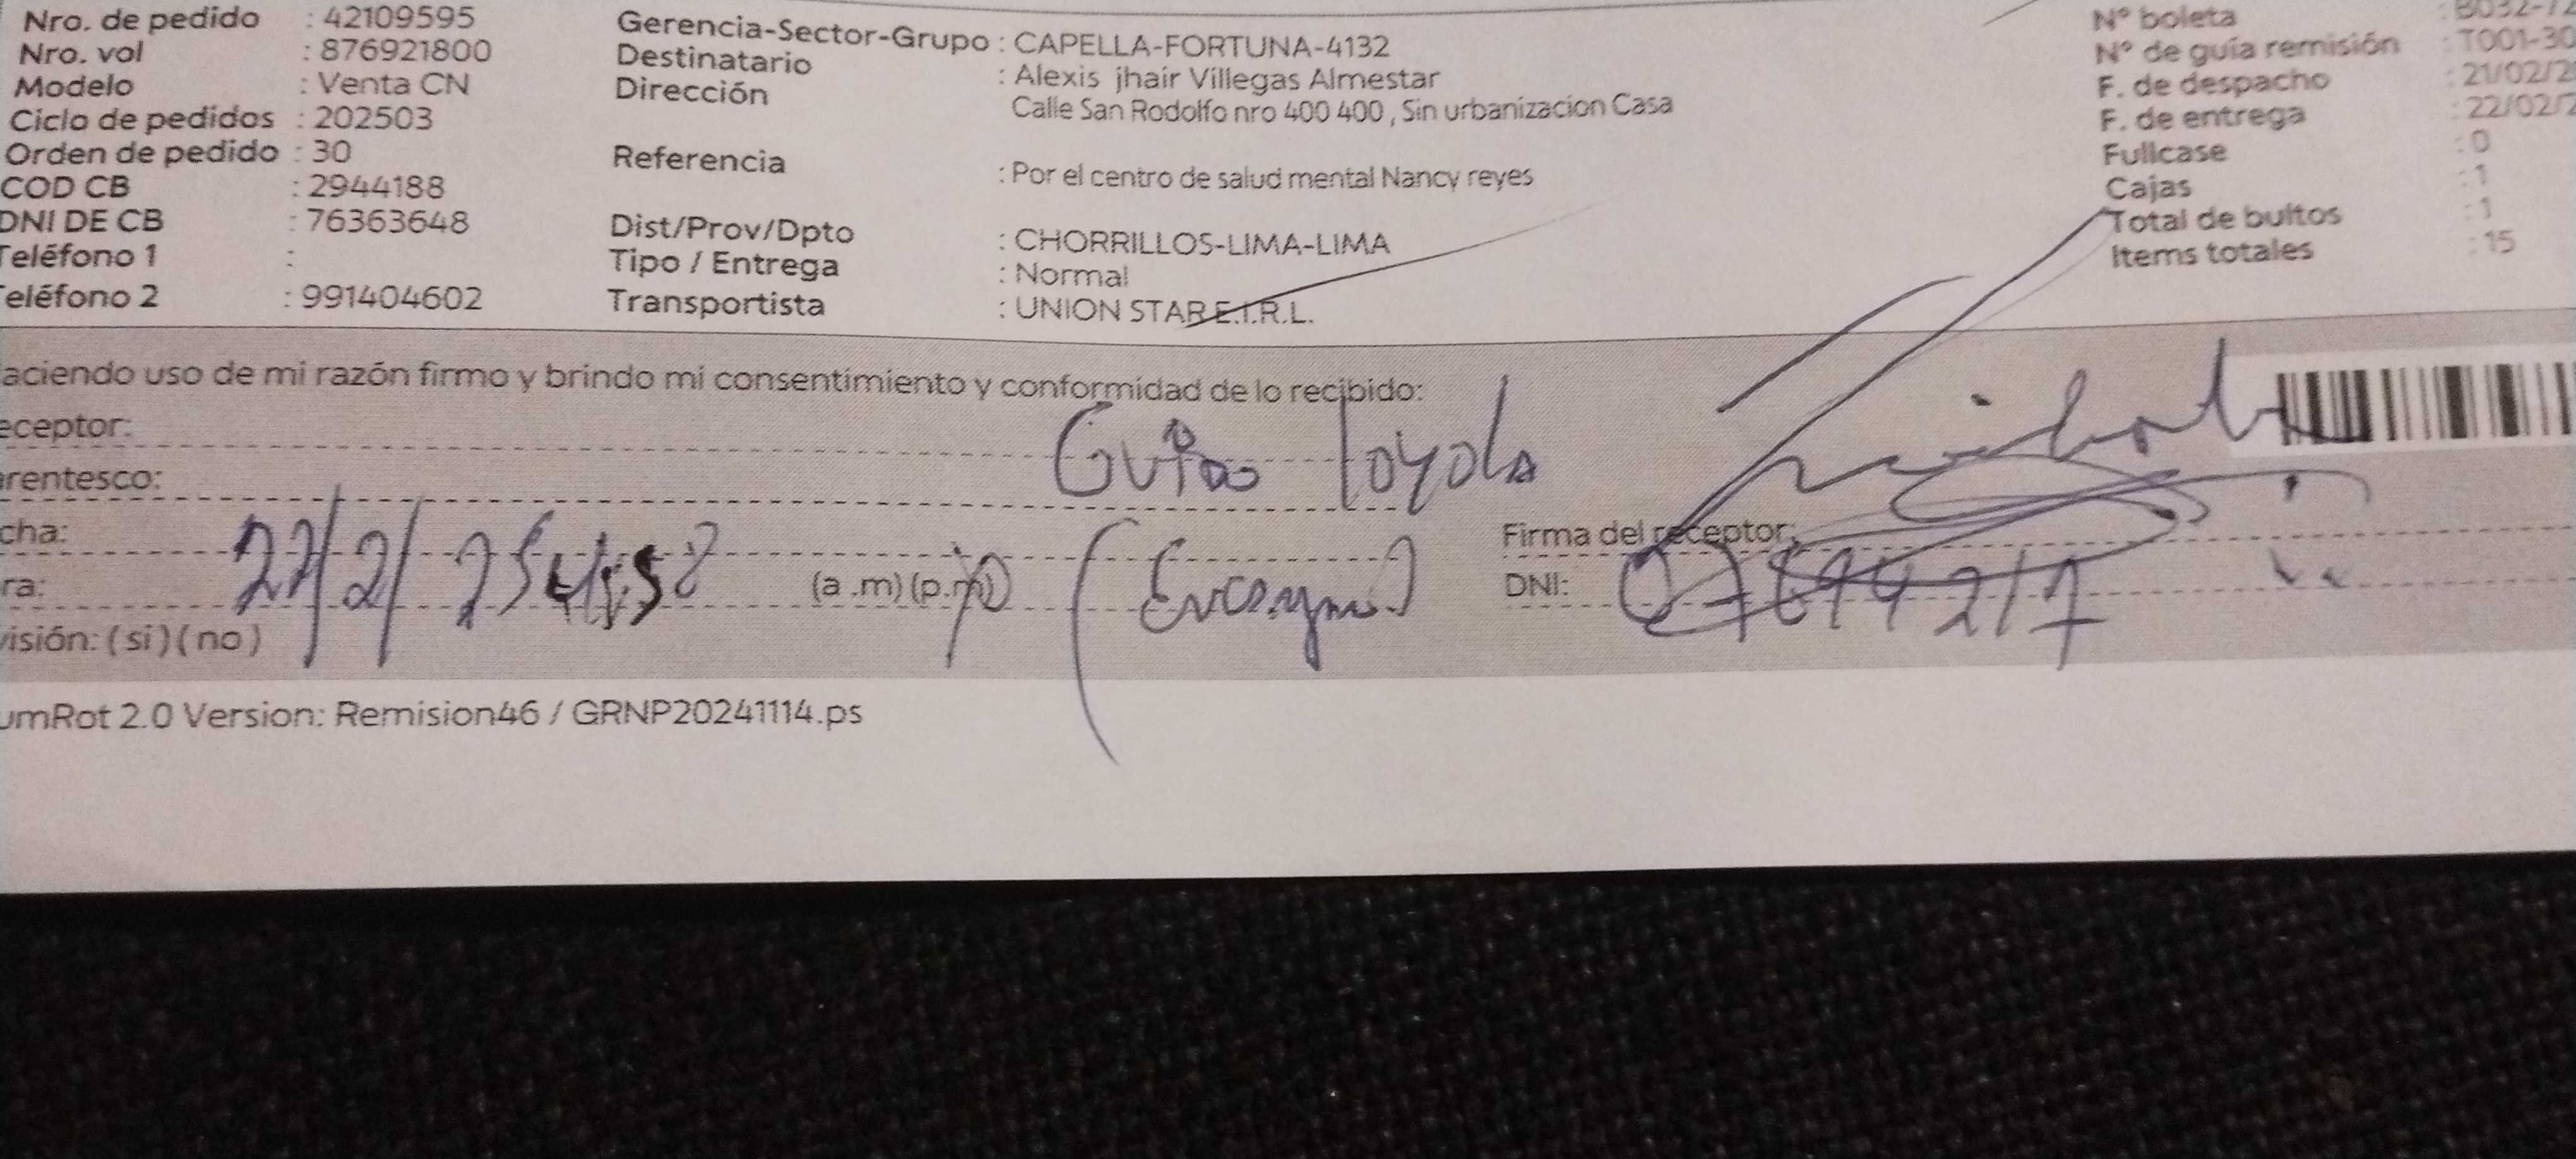 Nro. de pedido : 42109595
Nro. vol : 876921800
Modelo : Venta CN
Ciclo de pedidos : 202503
Orden de pedido : 30
COD CB : 2944188
DNI DE CB : 76363648
Teléfono 1 :
Teléfono 2 : 991404602
Gerencia-Sector-Grupo : CAPELLA-FORTUNA-4132
Destinatario : Alexis jhair Villegas Almestar
Dirección Calle San Rodolfo nro 400 400 , Sin urbanizacion Casa
Referencia : Por el centro de salud mental Nancy reyes
Dist/Prov/Dpto : CHORRILLOS-LIMA-LIMA
Tipo / Entrega : Normal
Transportista : UNION STAR E.I.R.L.
N° boleta : B032-72
N° de guía remisión : T001-30
F. de despacho : 21/02/2
F. de entrega : 22/02/2
Fullcase : 0
Cajas : 1
Total de bultos : 1
Items totales : 15
aciendo uso de mi razón firmo y brindo mi consentimiento y conformidad de lo recibido:
eceptor:
Loyola
arentesco:
cha:
22/2/25
ra:
(a .m) (p.m)
visión: ( si ) ( no )
Firma del receptor:
DNI:
umRot 2.0 Version: Remision46 / GRNP20241114.ps